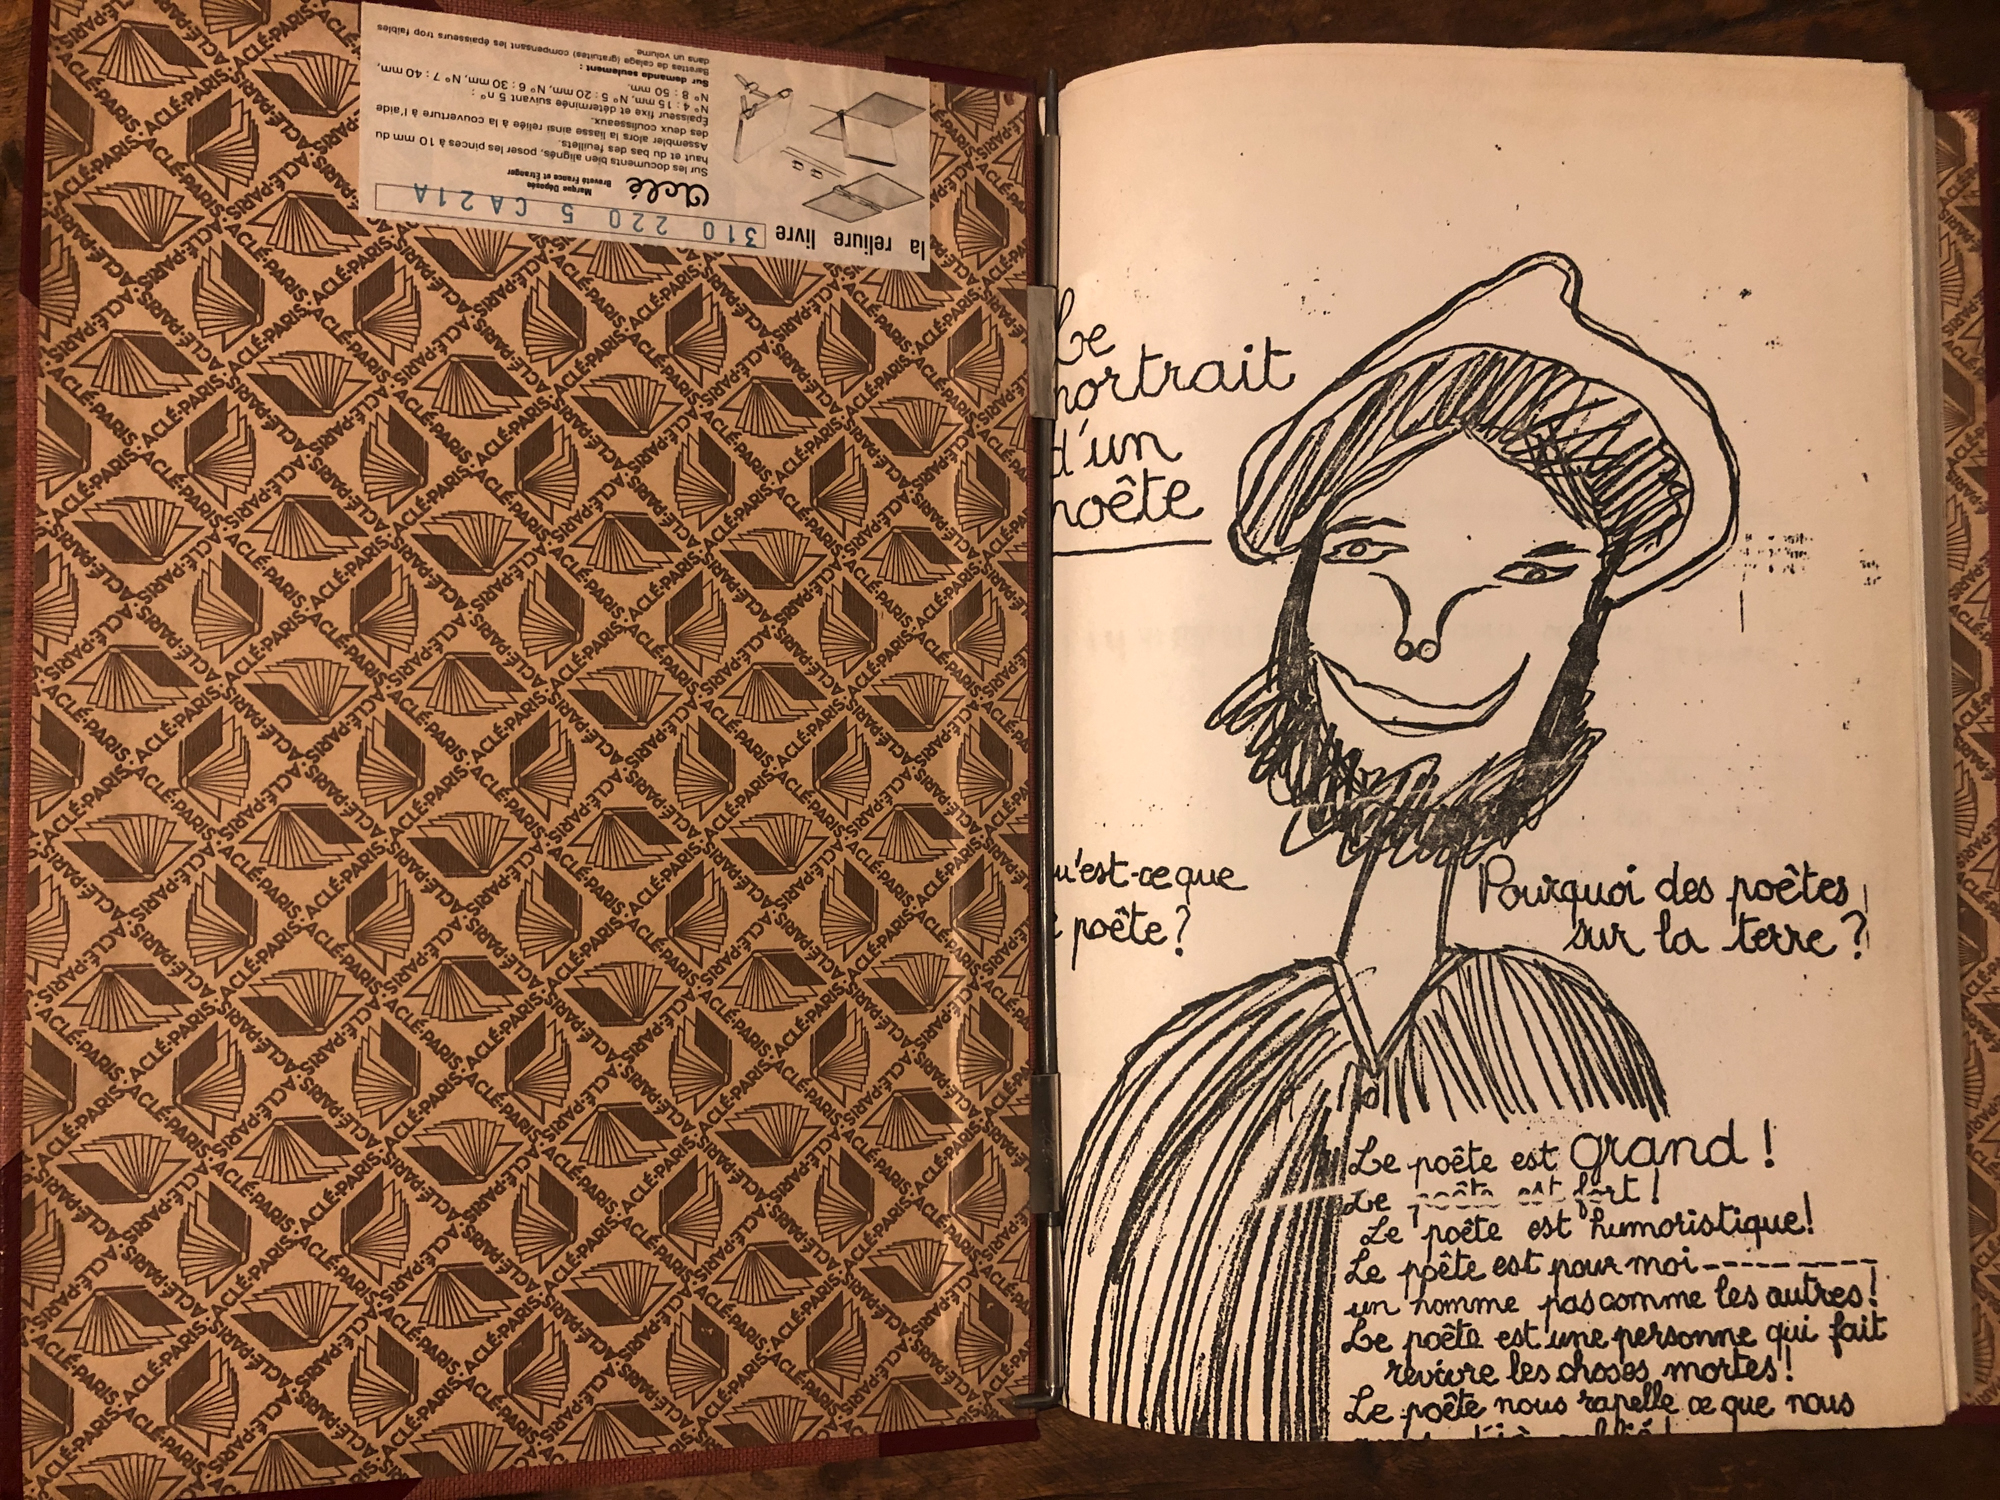 la reliure livre 310 220 5 CA21A
aclé
Marque Déposée
Breveté France et Etranger
Sur les documents bien alignés, poser les pinces à 10 mm du
haut et du bas des feuillets.
Assembler alors la liasse ainsi reliée à la couverture à l'aide
des deux coulisseaux.
Épaisseur fixe et déterminée suivant 5 n° :
N° 4 : 15 mm, N° 5 : 20 mm, N° 6 : 30 mm, N° 7 : 40 mm,
N° 8 : 50 mm.
Sur demande seulement :
Barettes de calage (gratuites) compensant les épaisseurs trop faibles
dans un volume.
ACLÉ-PARIS
Le
portrait
d'un
poête
qu'est-ce que
poête ?
Pourquoi des poêtes
sur la terre ?
Le poête est grand !
Le poête est fort !
Le poête est humoristique !
Le poête est pour moi ---------
un homme pas comme les autres !
Le poête est une personne qui fait
revivre les choses mortes !
Le poête nous rapelle ce que nous
avons déjà oublié !